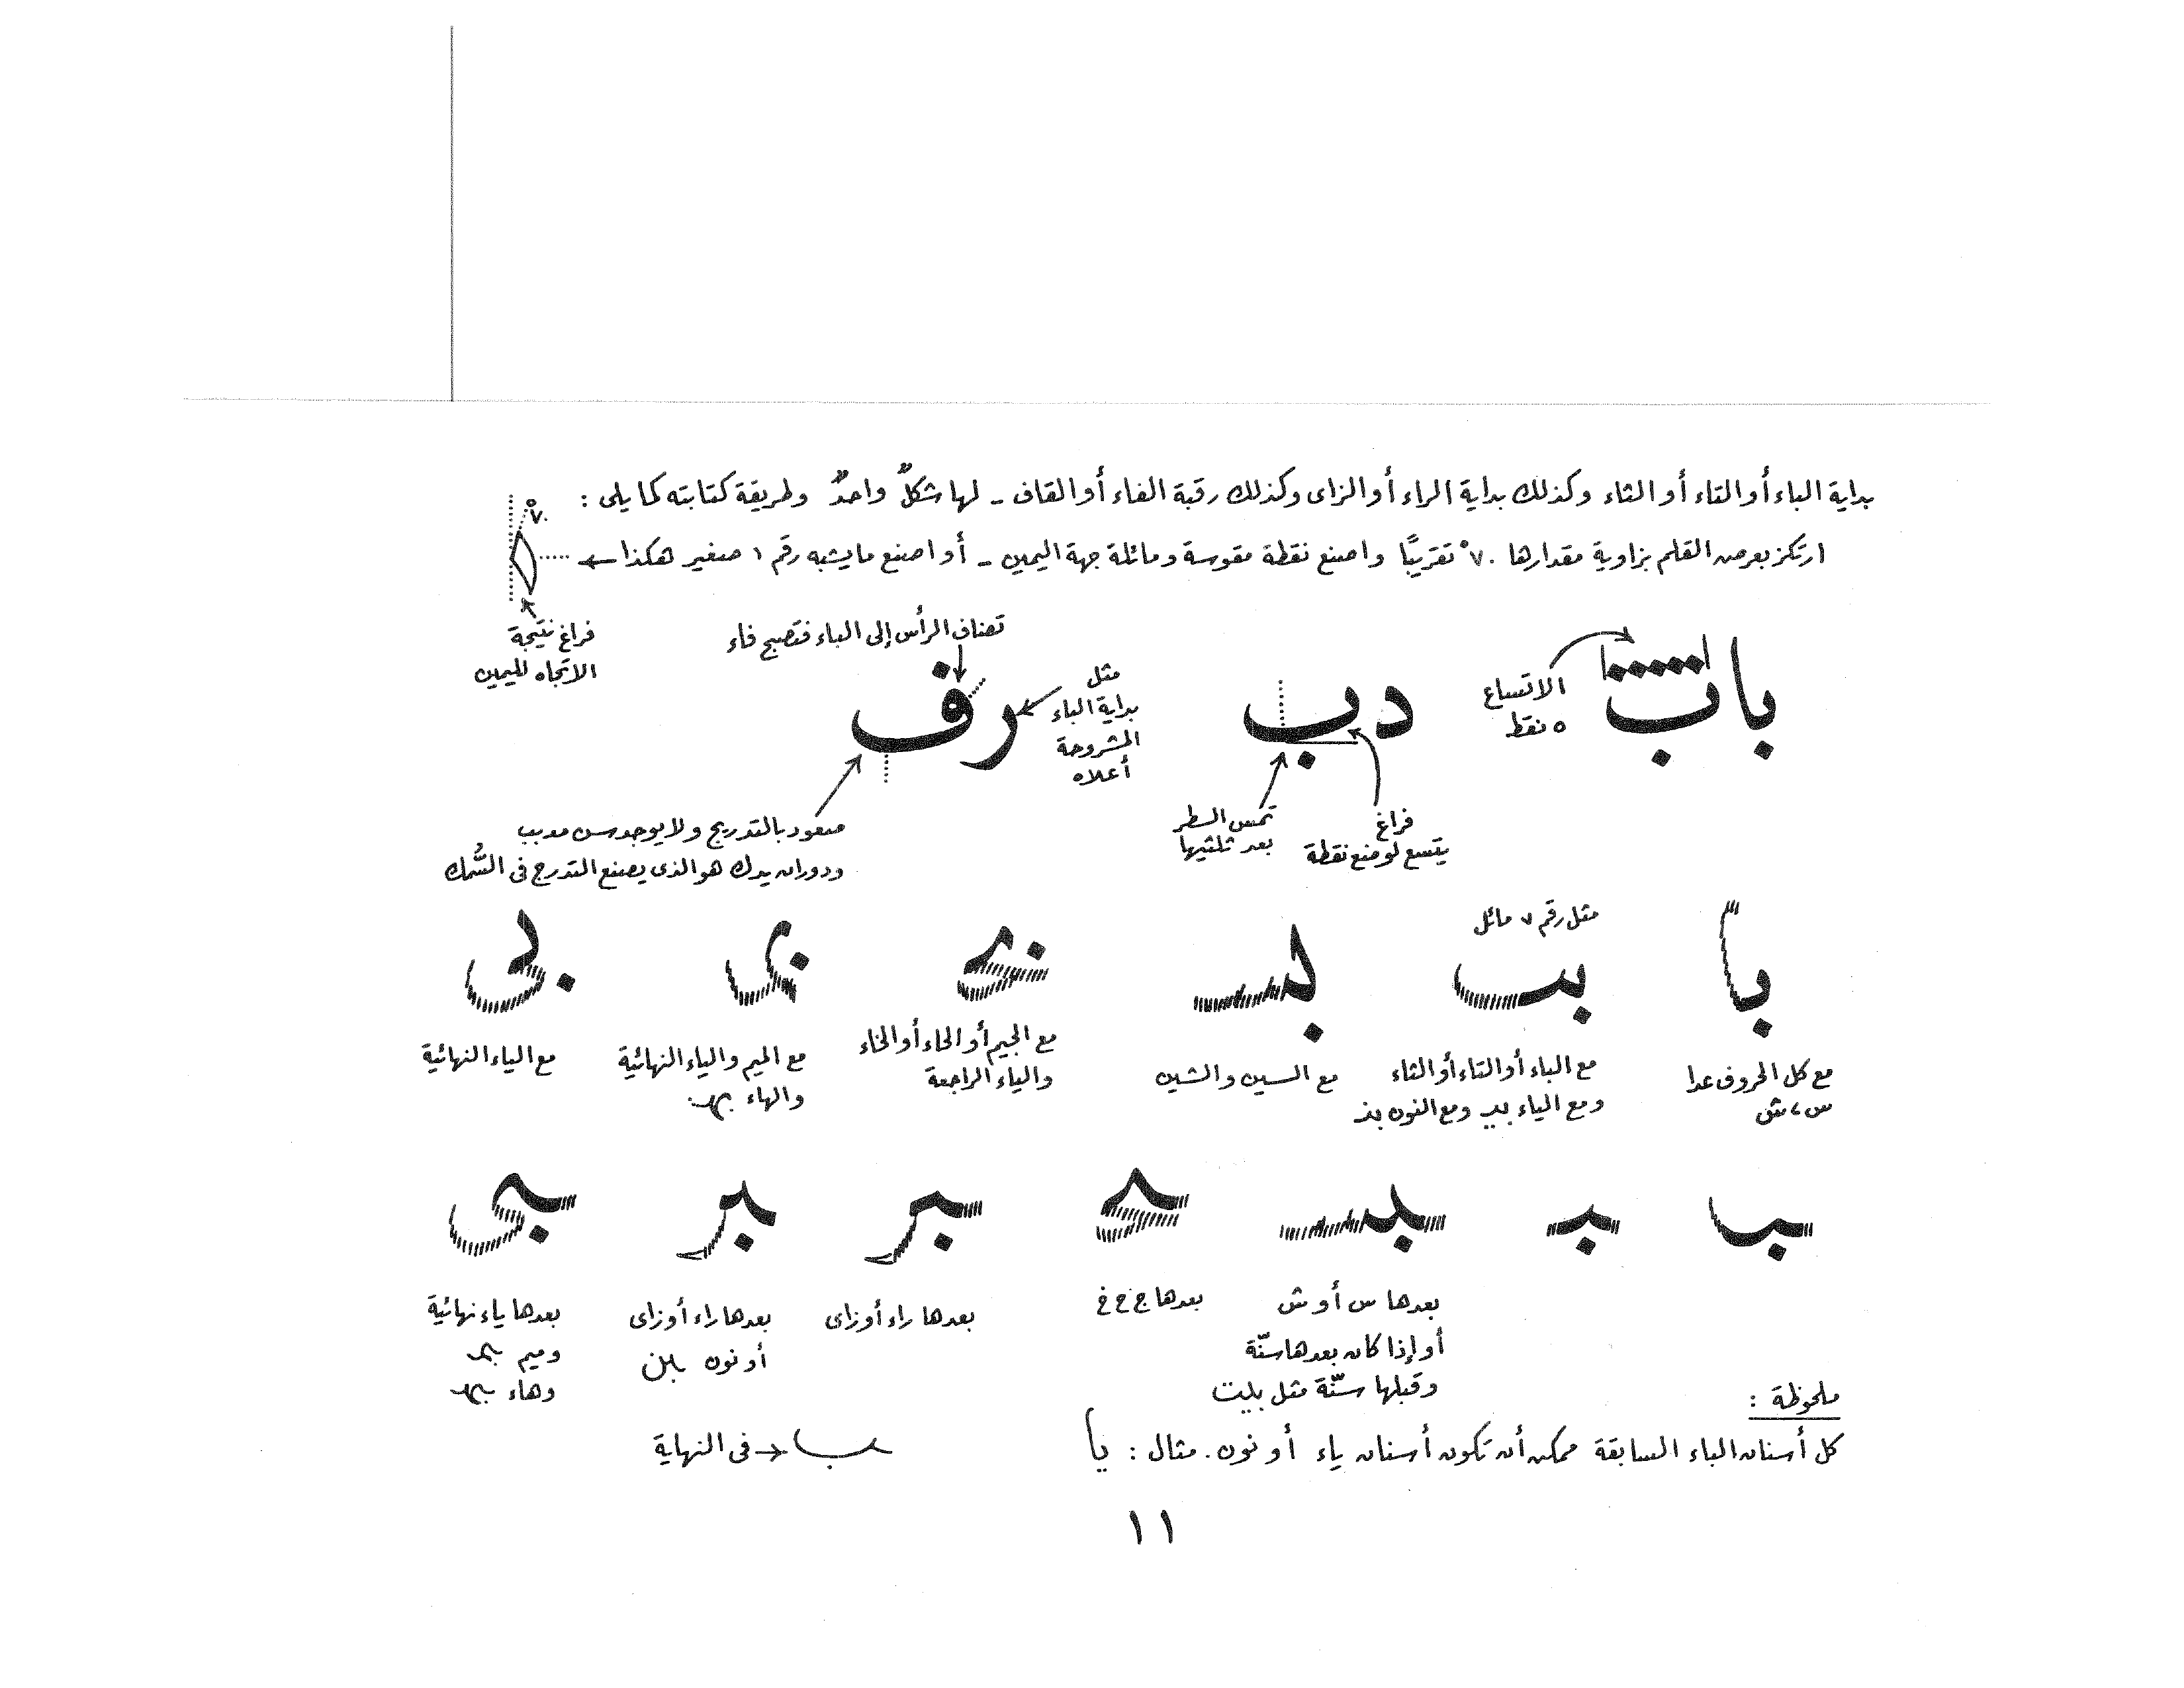 بداية الباء أو التاء أو الثاء وكذلك بداية الراء أو الزاى وكذلك رقبة الفاء أو القاف ـ لها شكلٌ واحدٌ وطريقة كتابته كما يلى :
ارتكز بعرض القلم بزاوية مقدارها ٧٠° تقريبًا واصنع نقطة مقوسة ومائلة جهة اليمين ـ أو اصنع ما يشبه رقم ١ صغير هكذا ←
٧٠°
فراغ نتيجة
الاتجاه لليمين
باب
الاتساع
٥ نقط
دب
فراغ
يتسع لوضع نقطة
تمس السطر
بعد ثلثيها
رف
تضاف الرأس إلى الباء فتصبح فاء
مثل
بداية الباء
المشروحة
أعلاه
صعود بالتدريج ولا يوجد سن مدبب
ودوران يدك هو الذى يصنع التدرج فى السُّمك
با
مع كل الحروف عدا
س ، ش
مثل رقم ٧ مائل
بب
مع الباء أو التاء أو الثاء
ومع الياء بيـ ومع النون بنـ
بسـ
مع السين والشين
مع الجيم أو الحاء أو الخاء
والياء الراجعة
مع الميم والياء النهائية
والهاء بهـ
بى
مع الياء النهائية
ـب
ـبـ
ـبسـ
بعدها س أو ش
أو إذا كان بعدها سنّة
وقبلها سنّة مثل بليت
ـبح
بعدها ج ح خ
ـبر
بعدها راء أو زاى
ـبر
بعدها راء أو زاى
أو نون ـبن
ـبى
بعدها ياء نهائية
وميم ـبمـ
وهاء ـبهـ
ملحوظة :
كل أسنان الباء السابقة ممكن أن تكون أسنان ياء أو نون. مثال : يا
ـب ← فى النهاية
١١